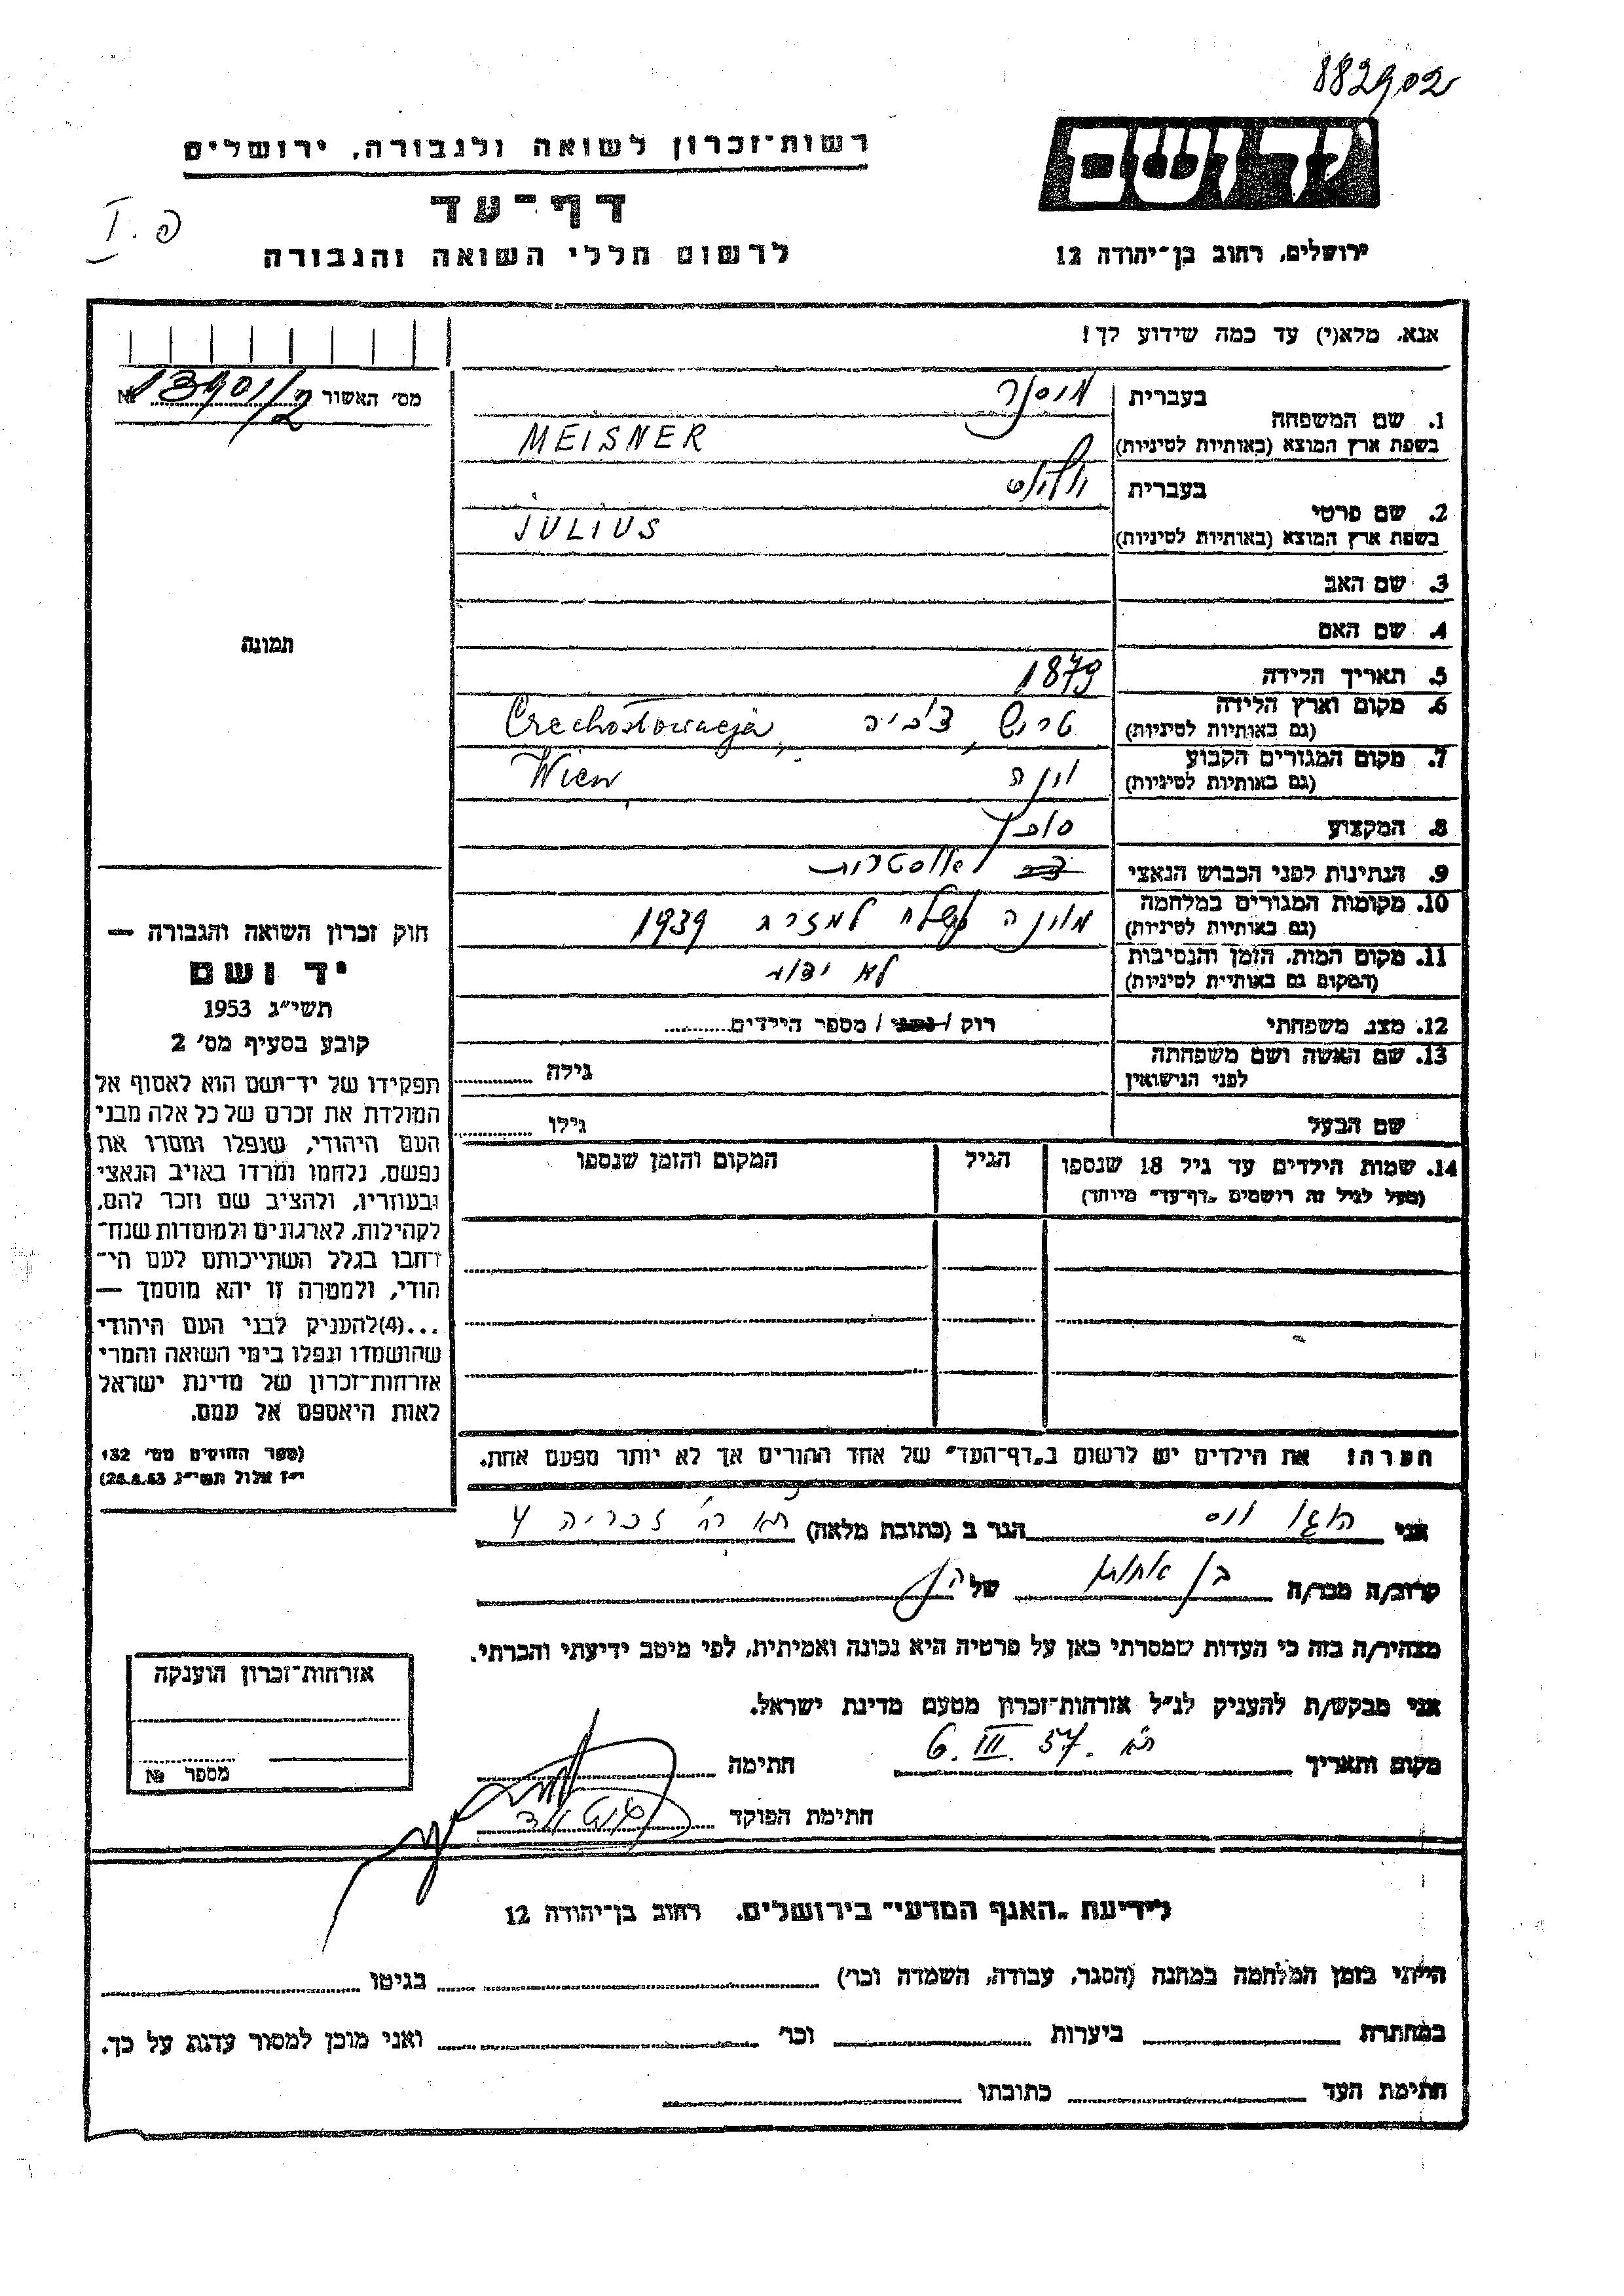 882902
יד ושם
רשות־זכרון לשואה ולגבורה, ירושלים
דף־עד
לרשום חללי השואה והגבורה
ירושלים, רחוב בן־יהודה 12
אנא, מלא(י) עד כמה שידוע לך!
מס' האשור № 13901/2
1. שם המשפחה
בעברית
בשפת ארץ המוצא (באותיות לטיניות)
MEISNER
2. שם פרטי
בעברית
בשפת ארץ המוצא (באותיות לטיניות)
JULIUS
3. שם האב
4. שם האם
5. תאריך הלידה 1879
6. מקום וארץ הלידה
(גם באותיות לטיניות)
Czechosłowacja
7. מקום המגורים הקבוע וינה Wien
(גם באותיות לטיניות)
8. המקצוע סוכן
9. הנתינות לפני הכבוש הנאצי
10. מקומות המגורים במלחמה מוינה נשלח למזרח 1939
(גם באותיות לטיניות)
11. מקום המות, הזמן והנסיבות לא ידוע
(המקום גם באותיות לטיניות)
12. מצב משפחתי רוק / נשוי / מספר הילדים
13. שם האשה ושם משפחתה
לפני הנישואין
גילה
שם הבעל
גילו
14. שמות הילדים עד גיל 18 שנספו
(מעל לגיל זה רושמים „דף־עד" מיוחד)
הגיל
המקום והזמן שנספו
תמונה
חוק זכרון השואה והגבורה —
יד ושם
תשי"ג 1953
קובע בסעיף מס' 2
תפקידו של יד־ושם הוא לאסוף אל
המולדת את זכרם של כל אלה מבני
העם היהודי, שנפלו ומסרו את
נפשם, נלחמו ומרדו באויב הנאצי
ובעוזריו, ולהציב שם וזכר להם,
לקהילות, לארגונים ולמוסדות שנח־
רבו בגלל השתייכותם לעם הי־
הודי, ולמטרה זו יהא מוסמך —
...(4)להעניק לבני העם היהודי
שהושמדו ונפלו בימי השואה והמרי
אזרחות־זכרון של מדינת ישראל
לאות היאספם אל עמם.
(ספר החוקים מס' 132
י"ז אלול תשי"ג 28.8.53)
הערה! את הילדים יש לרשום ב„דף־העד" של אחד ההורים אך לא יותר מפעם אחת.
אני הוגו וייס הגר ב (כתובת מלאה) זכריה 4
קרוב/ה מכר/ה בן אחות של
מצהיר/ה בזה כי העדות שמסרתי כאן על פרטיה היא נכונה ואמיתית, לפי מיטב ידיעתי והכרתי.
אני מבקש/ת להעניק לנ"ל אזרחות־זכרון מטעם מדינת ישראל.
מקום ותאריך 6. III. 57
חתימה
חתימת הפוקד
אזרחות־זכרון הוענקה
מספר №
לידיעת „האגף המדעי" בירושלים, רחוב בן־יהודה 12
הייתי בזמן המלחמה במחנה (הסגר, עבודה, השמדה וכו') בגיטו
במחתרת ביערות וכו' ואני מוכן למסור עדות על כך.
חתימת העד כתובתו